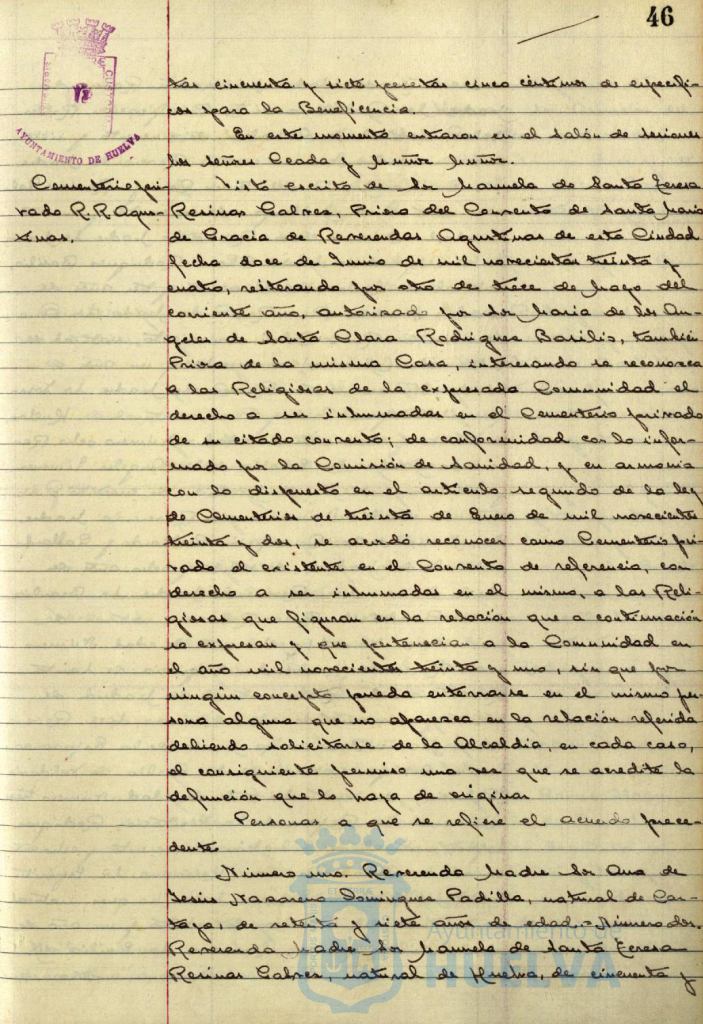 46
AYUNTAMIENTO DE HUELVA
tas cincuenta y siete pesetas cinco céntimos de específi-
cos para la Beneficencia.
En este momento entraron en el salón de sesiones
los señores Ceada y Muñoz Muñoz.
Cementerio pri-
vado R. R. Agus-
tinas.
Visto escrito de Sor Manuela de Santa Teresa
Resinas Galves, Priora del Convento de Santa Maria
de Gracia de Reverendas Agustinas de esta Ciudad
fecha doce de Junio de mil novecientos treinta y
cuatro, reiterando por otro de trece de Mayo del
corriente año, autorizado por Sor Maria de los An-
geles de Santa Clara Rodrigues Basilio, también
Priora de la misma Casa, interesando se reconosca
a las Religiosas de la expresada Comunidad el
derecho a ser inhumadas en el Cementerio privado
de su citado convento; de conformidad con lo infor-
mado por la Comisión de Sanidad, y en armonia
con lo dispuesto en el articulo segundo de la ley
de Cementerios de treinta de Enero de mil novecientos
treinta y dos, se acordó reconocer como Cementerio pri-
vado el existente en el Convento de referencia, con
derecho a ser inhumadas en el mismo, a las Reli-
giosas que figuran en la relación que a continuación
se expresan y que pertenecian a la Comunidad en
el año mil novecientos treinta y uno, sin que por
ningún concepto pueda enterrarse en el mismo per-
sona alguna que no aparesca en la relación referida
debiendo solicitarse de la Alcaldia, en cada caso,
el consiguiente permiso una ves que se acredite la
defunción que lo haya de originar
Personas a que se refiere el acuerdo prece-
dente
Número uno. Reverenda Madre Sor Ana de
Jesús Nasareno Domingues Padilla, natural de Car-
taya, de setenta y siete años de edad.=Número dos.
Reverenda Madre Sor Manuela de Santa Teresa
Resinas Galves, natural de Huelva, de cincuenta y
Ayuntamiento de
HUELVA